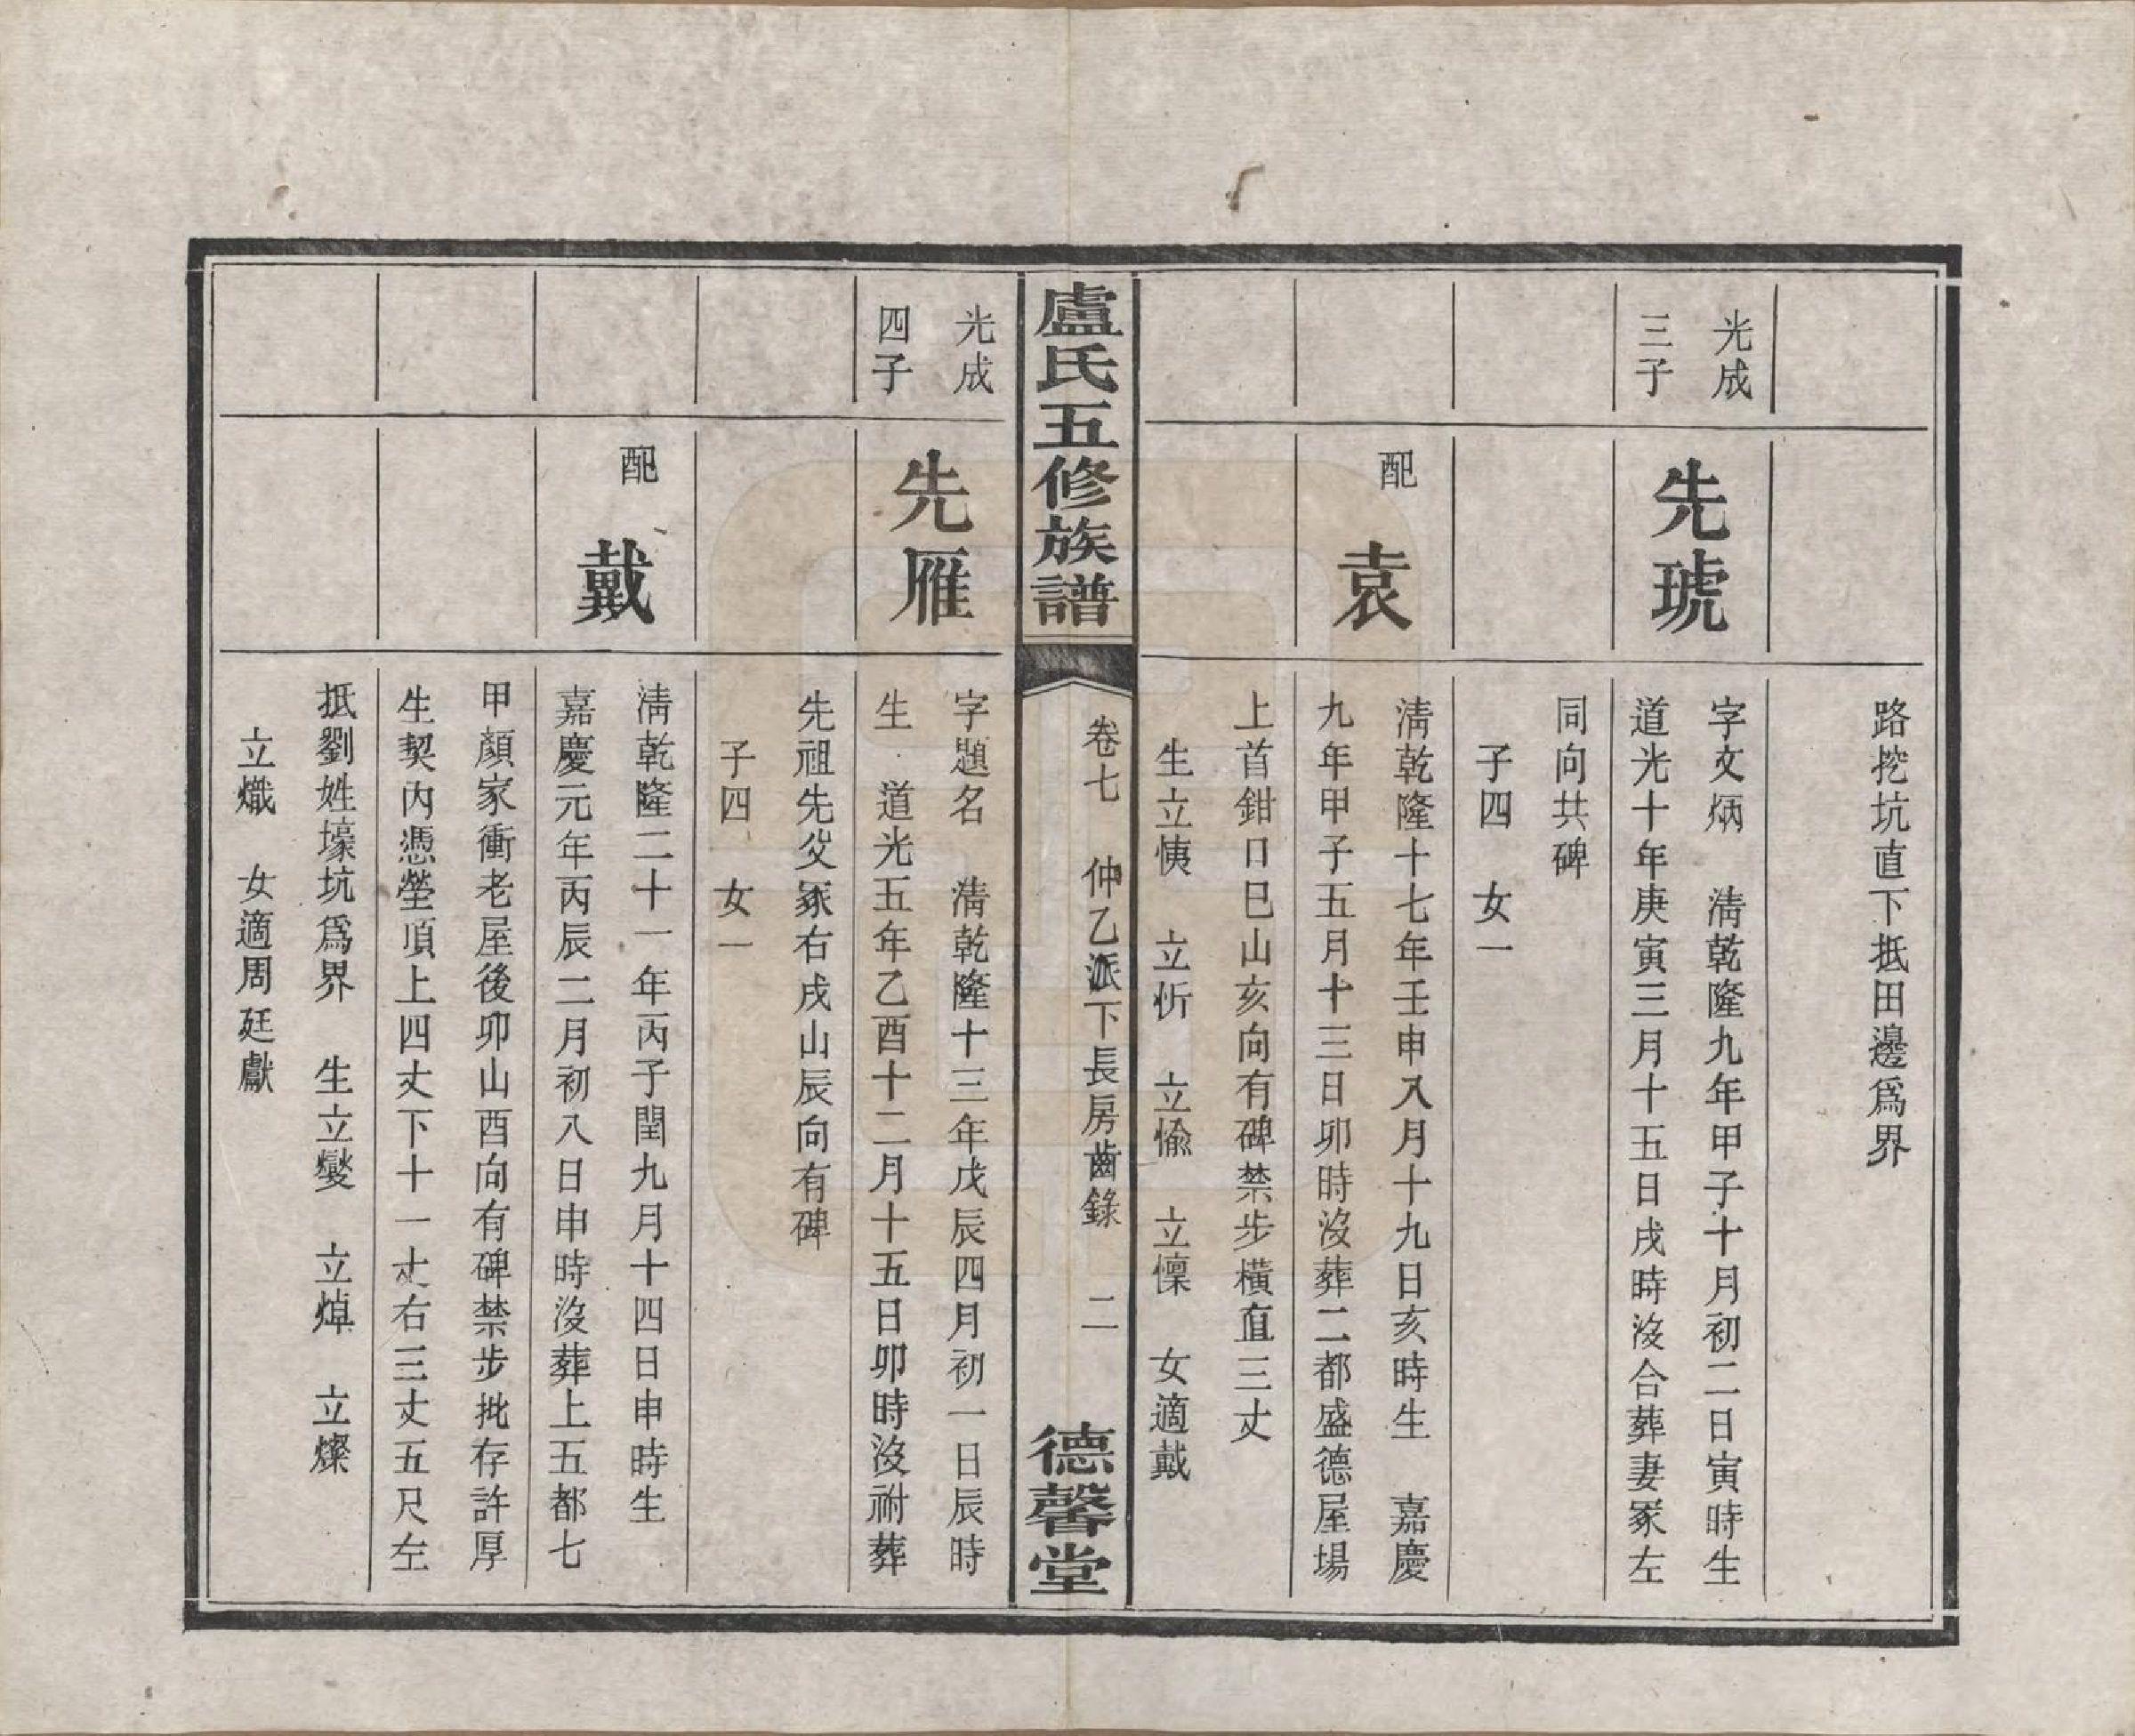 路挖坑直下抵田邊爲界
光成
三子
先琥
字文炳　清乾隆九年甲子十月初二日寅時生
道光十年庚寅三月十五日戌時沒合葬妻冢左
同向共碑
子四　女一
配
袁
清乾隆十七年壬申八月十九日亥時生　嘉慶
九年甲子五月十三日卯時沒葬二都盛德屋場
上首鉗口巳山亥向有碑禁步橫直三丈
生立㤢　立忻　立愉　立懍　女適戴
盧氏五修族譜
卷七　仲乙派下長房齒錄　二
德馨堂
光成
四子
先雁
字題名　清乾隆十三年戊辰四月初一日辰時
生　道光五年乙酉十二月十五日卯時沒祔葬
先祖先㕛冢右戌山辰向有碑
子四　女一
配
戴
清乾隆二十一年丙子閏九月十四日申時生
嘉慶元年丙辰二月初八日申時沒葬上五都七
甲顏家衝老屋後卯山酉向有碑禁步批存許厚
生契內憑塋項上四丈下十一丈右三丈五尺左
抵劉姓壕坑爲界　生立燮　立焯　立燦
立熾　女適周廷獻